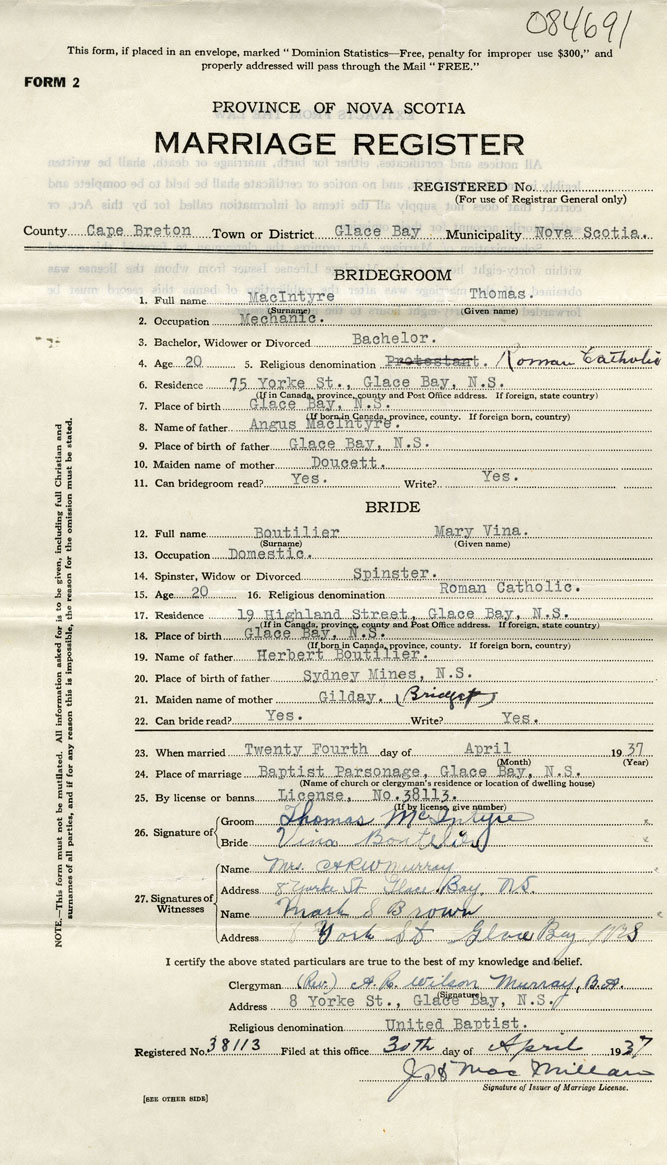 084691
This form, if placed in an envelope, marked " Dominion Statistics—Free, penalty for improper use $300," and
properly addressed will pass through the Mail " FREE."
FORM 2
PROVINCE OF NOVA SCOTIA
MARRIAGE REGISTER
REGISTERED No.
(For use of Registrar General only)
County Cape Breton Town or District Glace Bay Municipality Nova Scotia.
BRIDEGROOM
1. Full name MacIntyre Thomas.
(Surname) (Given name)
2. Occupation Mechanic.
3. Bachelor, Widower or Divorced Bachelor.
4. Age 20 5. Religious denomination Protestant. Roman Catholic
6. Residence 75 Yorke St., Glace Bay, N.S.
(If in Canada, province, county and Post Office address. If foreign, state country)
7. Place of birth Glace Bay, N.S.
(If born in Canada, province, county. If foreign born, country)
8. Name of father Angus MacIntyre.
9. Place of birth of father Glace Bay, N.S.
10. Maiden name of mother Doucett.
11. Can bridegroom read? Yes. Write? Yes.
BRIDE
12. Full name Boutilier Mary Vina.
(Surname) (Given name)
13. Occupation Domestic.
14. Spinster, Widow or Divorced Spinster.
15. Age 20 16. Religious denomination Roman Catholic.
17. Residence 19 Highland Street, Glace Bay, N.S.
(If in Canada, province, county and Post Office address. If foreign, state country)
18. Place of birth Glace Bay, N.S.
(If born in Canada, province, county. If foreign born, country)
19. Name of father Herbert Boutilier.
20. Place of birth of father Sydney Mines, N.S.
21. Maiden name of mother Gilday. (Bridget)
22. Can bride read? Yes. Write? Yes.
23. When married Twenty Fourth day of April 1937
(Month) (Year)
24. Place of marriage Baptist Parsonage, Glace Bay, N.S.
(Name of church or clergyman's residence or location of dwelling house)
25. By license or banns License, No.38113.
(If by license, give number)
26. Signature of Groom Thomas McIntyre
Bride Vina Boutilier
27. Signatures of Witnesses
Name Mrs. A R W Murray
Address 8 Yorke St Glace Bay, NS.
Name Mark S Brown
Address 8 York St Glace Bay NS
I certify the above stated particulars are true to the best of my knowledge and belief.
Clergyman (Rev.) A. R. Wilson Murray, B.A.
(Signature)
Address 8 Yorke St., Glace Bay, N.S.
Religious denomination United Baptist.
Registered No. 38113 Filed at this office 30th day of April 1937
MacMillan
Signature of Issuer of Marriage License.
[SEE OTHER SIDE]
NOTE.—This form must not be mutilated. All information asked for is to be given, including full Christian and
surnames of all parties, and if for any reason this is impossible, the reason for the omission must be stated.